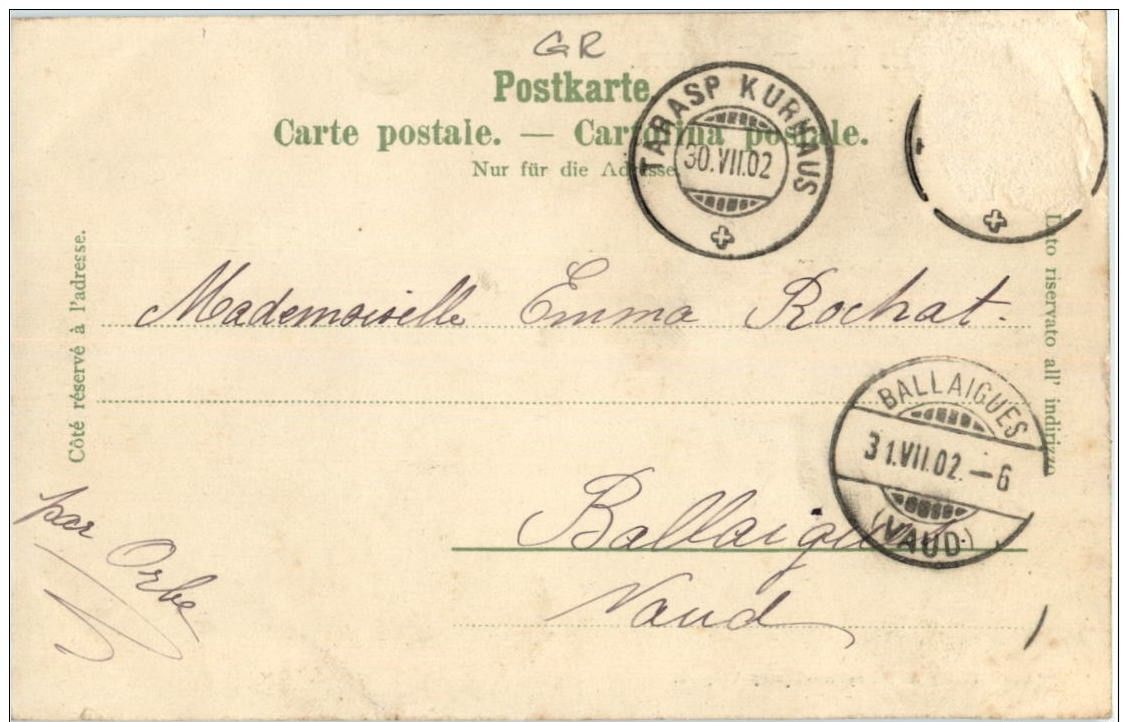 GR
Postkarte.
Carte postale. — Cartolina postale.
Nur für die Adresse.
TARASP KURHAUS
30.VII.02
Côté réservé à l'adresse.
Lato riservato all' indirizzo
Mademoiselle Emma Rochat.
BALLAIGUES
31.VII.02.–6
(VAUD)
Ballaigues.
Vaud
par Orbe